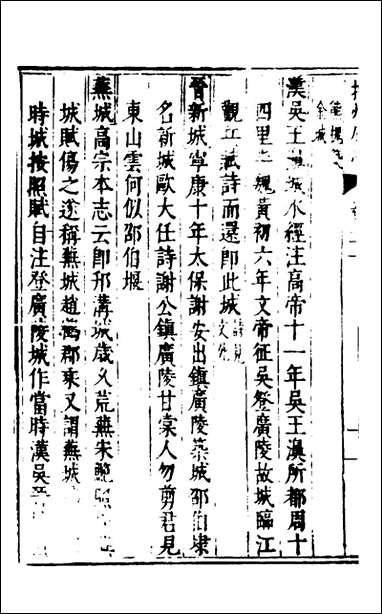 漢吳王濞城水經注高帝十一年吳王濞所都周十
四里半魏黃初六年文帝征吳登廣陵故城臨江
觀兵賦詩而還即此城
晉新城寧康十年太保謝安出鎮廣陵築城邵伯埭
名新城歐大任詩謝公鎮廣陵甘棠人勿剪君見
東山雲何似邵伯堰
蕪城高宗本志云即邗溝城歲久荒蕪宋鮑照
城賦傷之遂稱蕪城趙鶴郡乘又謂蕪城
時城按照賦自注登廣陵城作當時漢吳